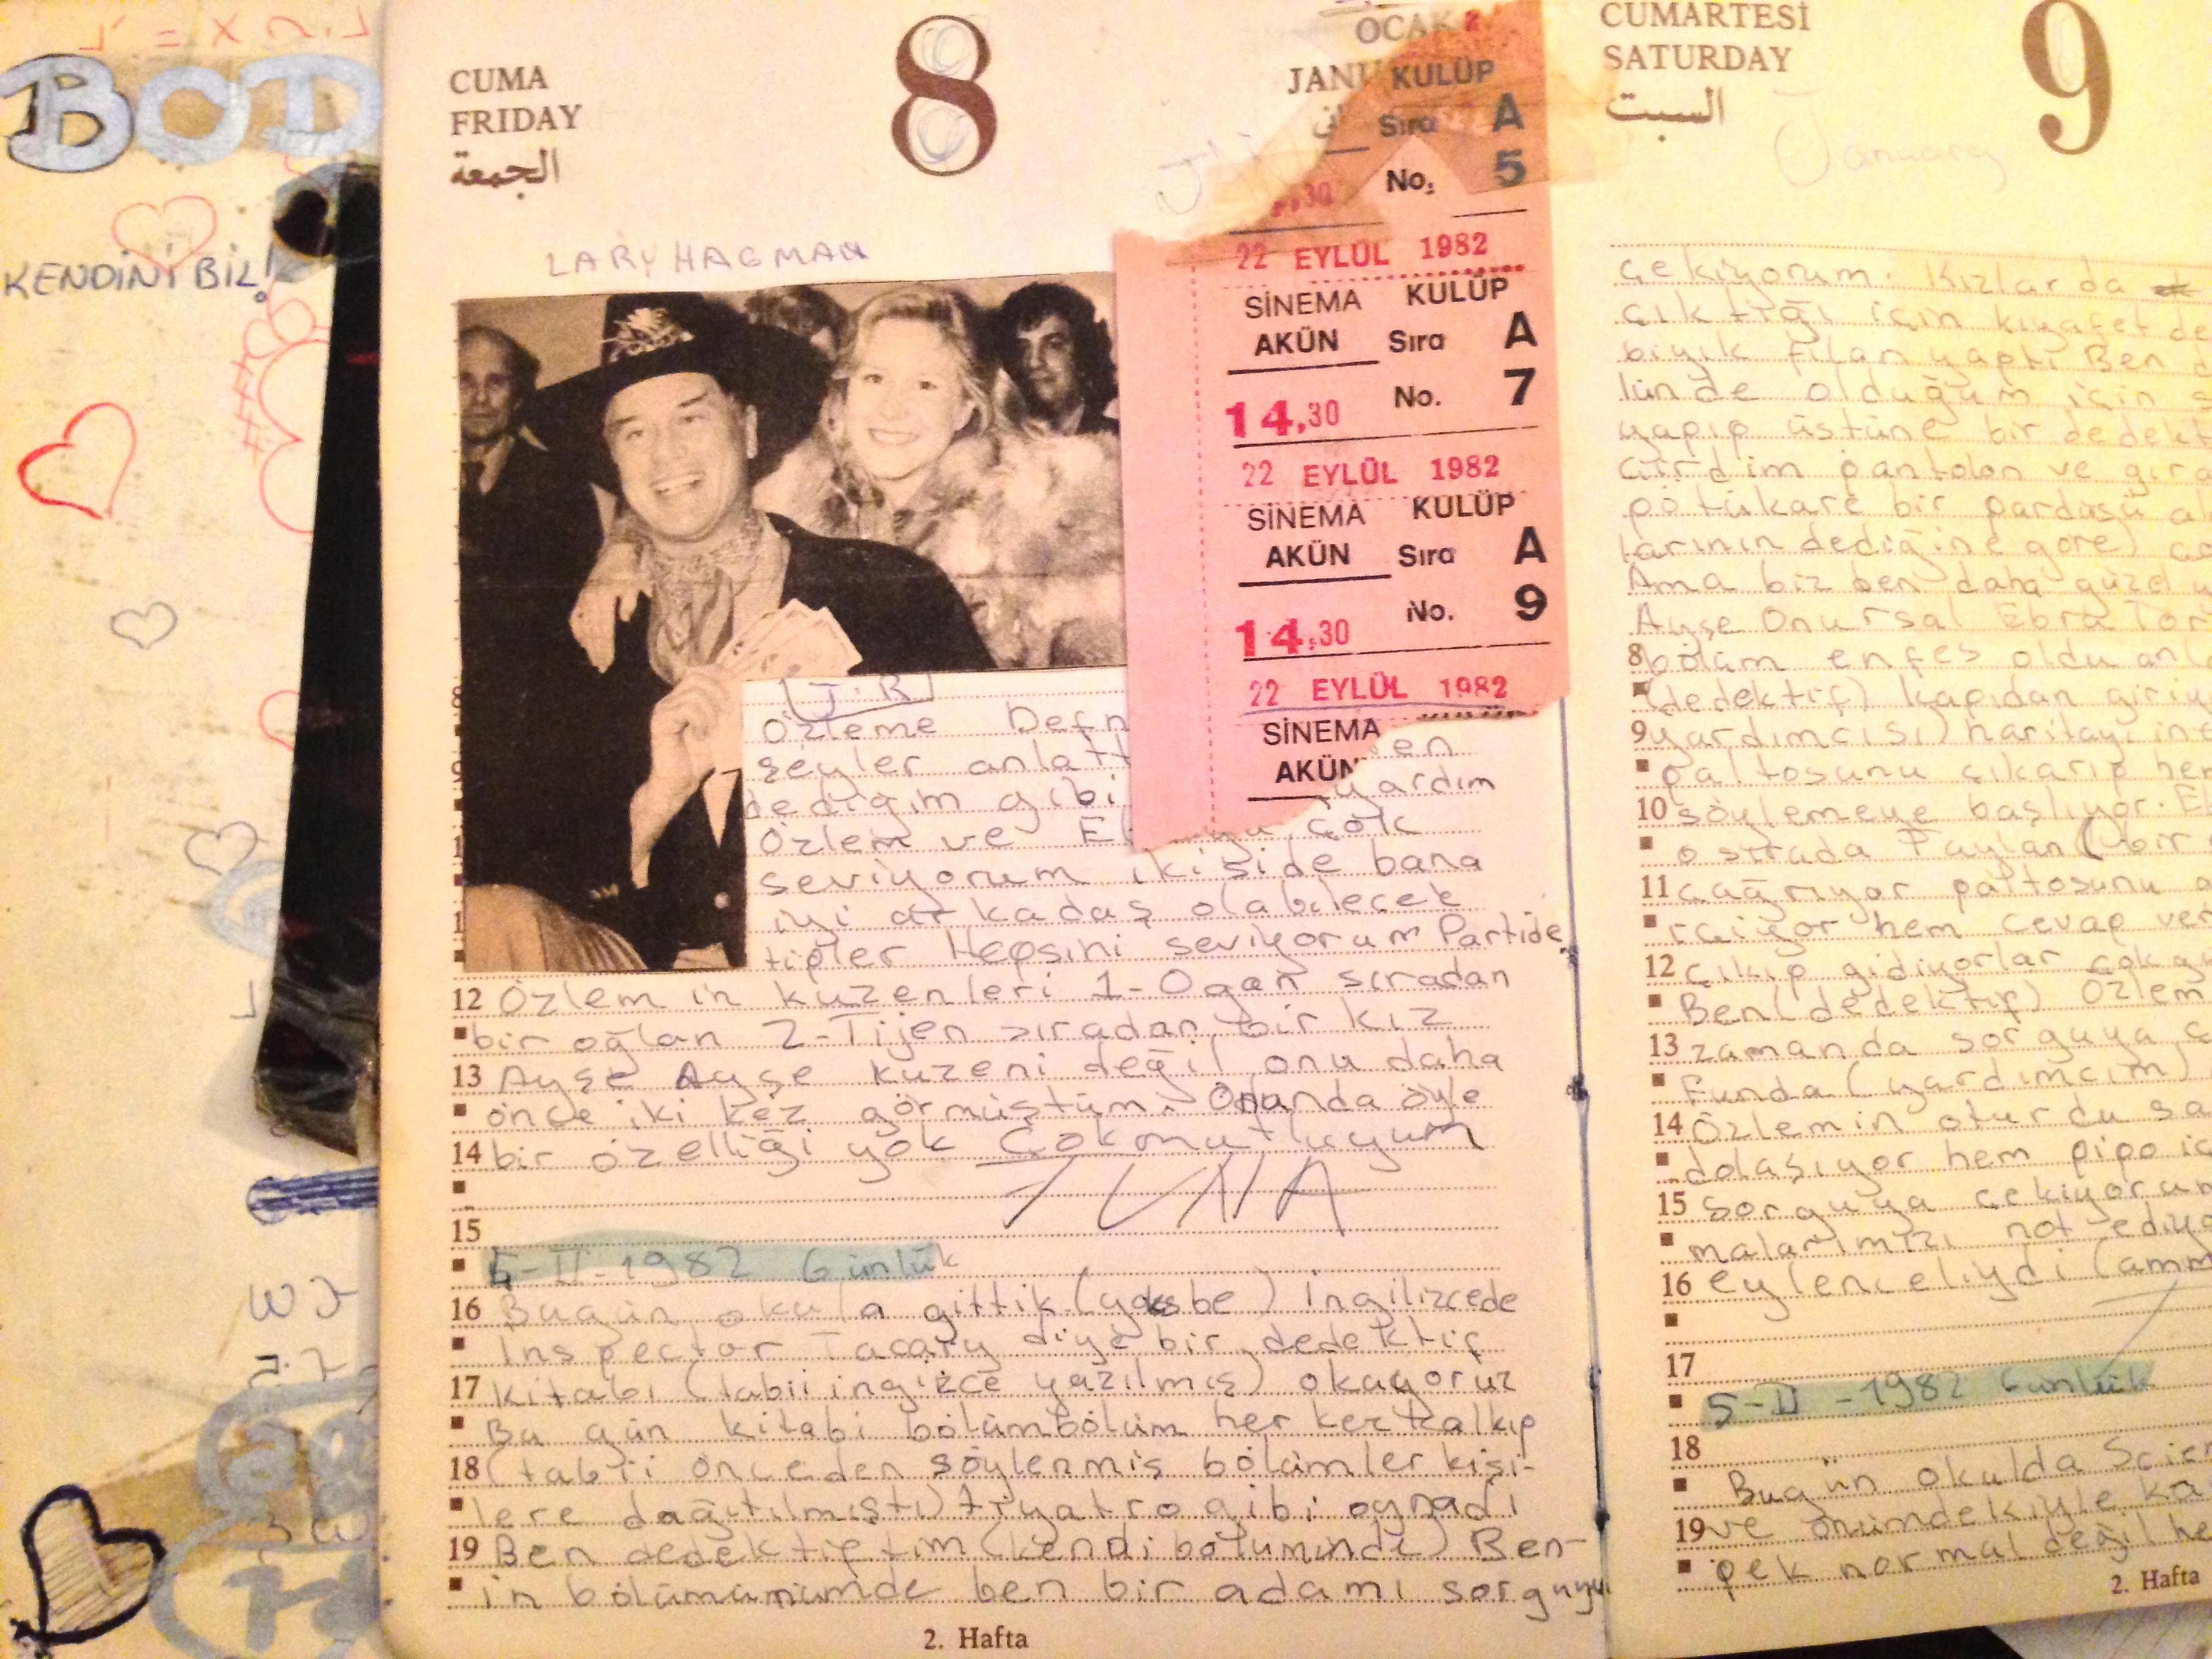 BOD
KENDİNİ BİL!
CUMA
FRIDAY
الجمعة
8
OCAK
JANU
LARY HAGMAN
J.R
Özleme Defn
şeyler anlatt en
dediğim gibi yardım
Özlem ve E çok
seviyorum ikiside bana
iyi arkadaş olabilecek
tipler Hepsini seviyorum Partide
12 Özlemin kuzenleri 1-Ogan sıradan
bir oğlan 2-Tijen sıradan bir kız
13 Ayşe Ayşe kuzeni değil onu daha
önce iki kez görmüştüm. Onunda öyle
14 bir özelliği yok Çok mutluyum
TUNA
15
5-II-1982 Günlük
16 Bugün okula gittik İngilizcede
Inspector diye bir dedektif
17 kitabı (tabii yazılmış) okuyoruz
Bu gün kitabı bölümbölüm herkez kalkıp
18 (tabii önceden söylenmiş bölümler kişi-
lere dağıtılmıştı) tiyatro gibi oynadı
19 Ben dedektiftim (kendi bölümümde) Ben-
in bölümümde ben bir adamı sorguya
2. Hafta
KULÜP
Sıra A
No. 5
.30
22 EYLÜL 1982
SİNEMA KULÜP
AKÜN Sıra A
14.30 No. 7
22 EYLÜL 1982
SİNEMA KULÜP
AKÜN Sıra A
14.30 No. 9
22 EYLÜL 1982
SİNEMA
AKÜN
CUMARTESİ
SATURDAY
السبت
9
January
çekiyorum. Kızlar da
çıktığı için kıyafet de
bıyık filan yaptı Ben d
lünde olduğum için
yapıp üstüne bir dedekt
pantolon ve
pötükare bir pardüsü al
larının dediğine göre)
Ama biz ben daha güzel
Ayşe Onursal Ebru Tor
8 bölüm enfes oldu anla
(dedektif) kapıdan giriy
9 yardımcısı) haritayı in
paltosunu çıkarıp hem
10 söylemeye başlıyor. E
o sırada Faylan (bir
11 çağrıyor paltosunu
hem cevap ver
12 çıkıp gidiyorlar çok
Ben (dedektif) Özlem
13 zamanda sorguya ç
Funda (yardımcım)
14 Özlemin oturdu sa
dolaşıyor hem pipo iç
15 Sorguya çekiyorum
malarımızı not ediyo
16 eylenceliydi (amm
17
5-II-1982 Günlük
18
Bugün okulda Scien
19 ve önümdekiyle ka
pek normal değil he
2. Hafta